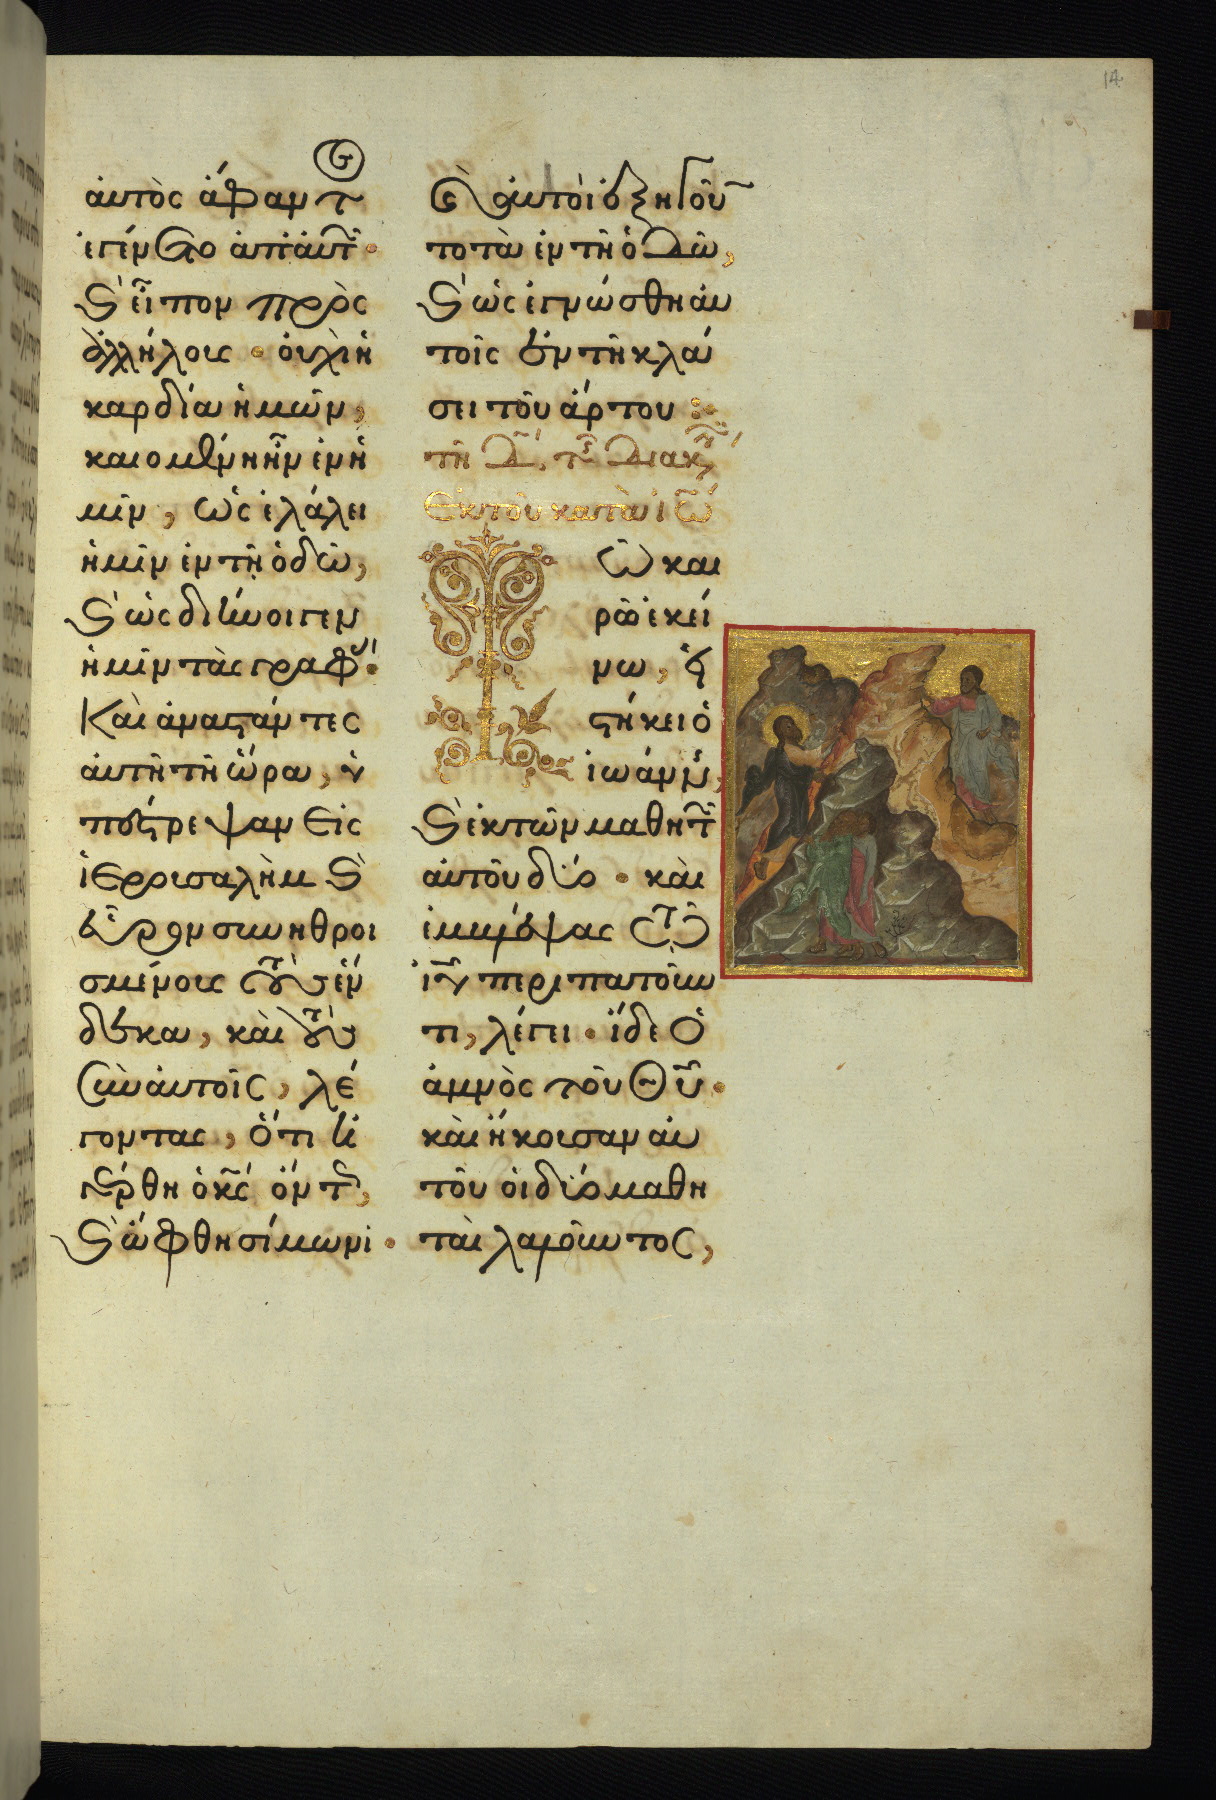 14
ϛ
αὐτὸς ἄφαντ
ἐγένετο ἀπ' αὐτ
ϛ εἶπον πρὸς
ἀλλήλους · οὐχὶ ἡ
καρδία ἡμῶν,
καιομένη ἦν ἐν ἡ
μῖν, ὡς ἐλάλει
ἡμῖν ἐν τῆ ὁδῶ,
ϛ ὡς διήνοιγεν
ἡμῖν τὰς γραφ ·
Καὶ ἀναστάντες
αὐτῆ τῆ ὥρα, ὑ
πέστρεψαν εἰς
ἱερουσαλὴμ ϛ
εὗρον συνηθροι
σμένους τοὺς ἕν
δεκα, καὶ τοὺς
σὺν αὐτοῖς, λέ
γοντας, ὅτι ἠ
γέρθη ὁ κς ὄντ,
ϛ ὤφθη σίμωνι ·
ϛ αὐτοὶ ἐξηγοῦν
το τὰ ἐν τῆ ὁδῶ,
ϛ ὡς ἐγνώσθη αὐ
τοῖς ἐν τῆ κλά
σει τοῦ ἄρτου
τῆ Δ, τ Διακ
Ἐκ τοῦ κατὰ ἰω
Τῶ και
ρῶ ἐκεί
νω, εἱ
στήκει ὁ
ἰωάνν,
ϛ ἐκ τῶν μαθητ
αὐτοῦ δύο · καὶ
ἐμβλέψας τῶ
ἰυ περιπατοῦν
τι, λέγει · ἴδε ὁ
ἀμνὸς τοῦ Θυ ·
καὶ ἤκουσαν αὐ
τοῦ οἱ δύο μαθη
ταὶ λαλοῦντος,